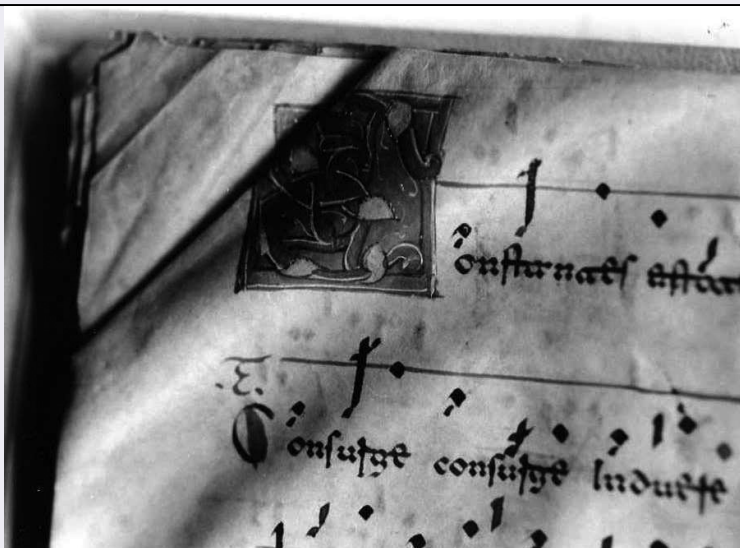 Constantes
Consurge consurge induere